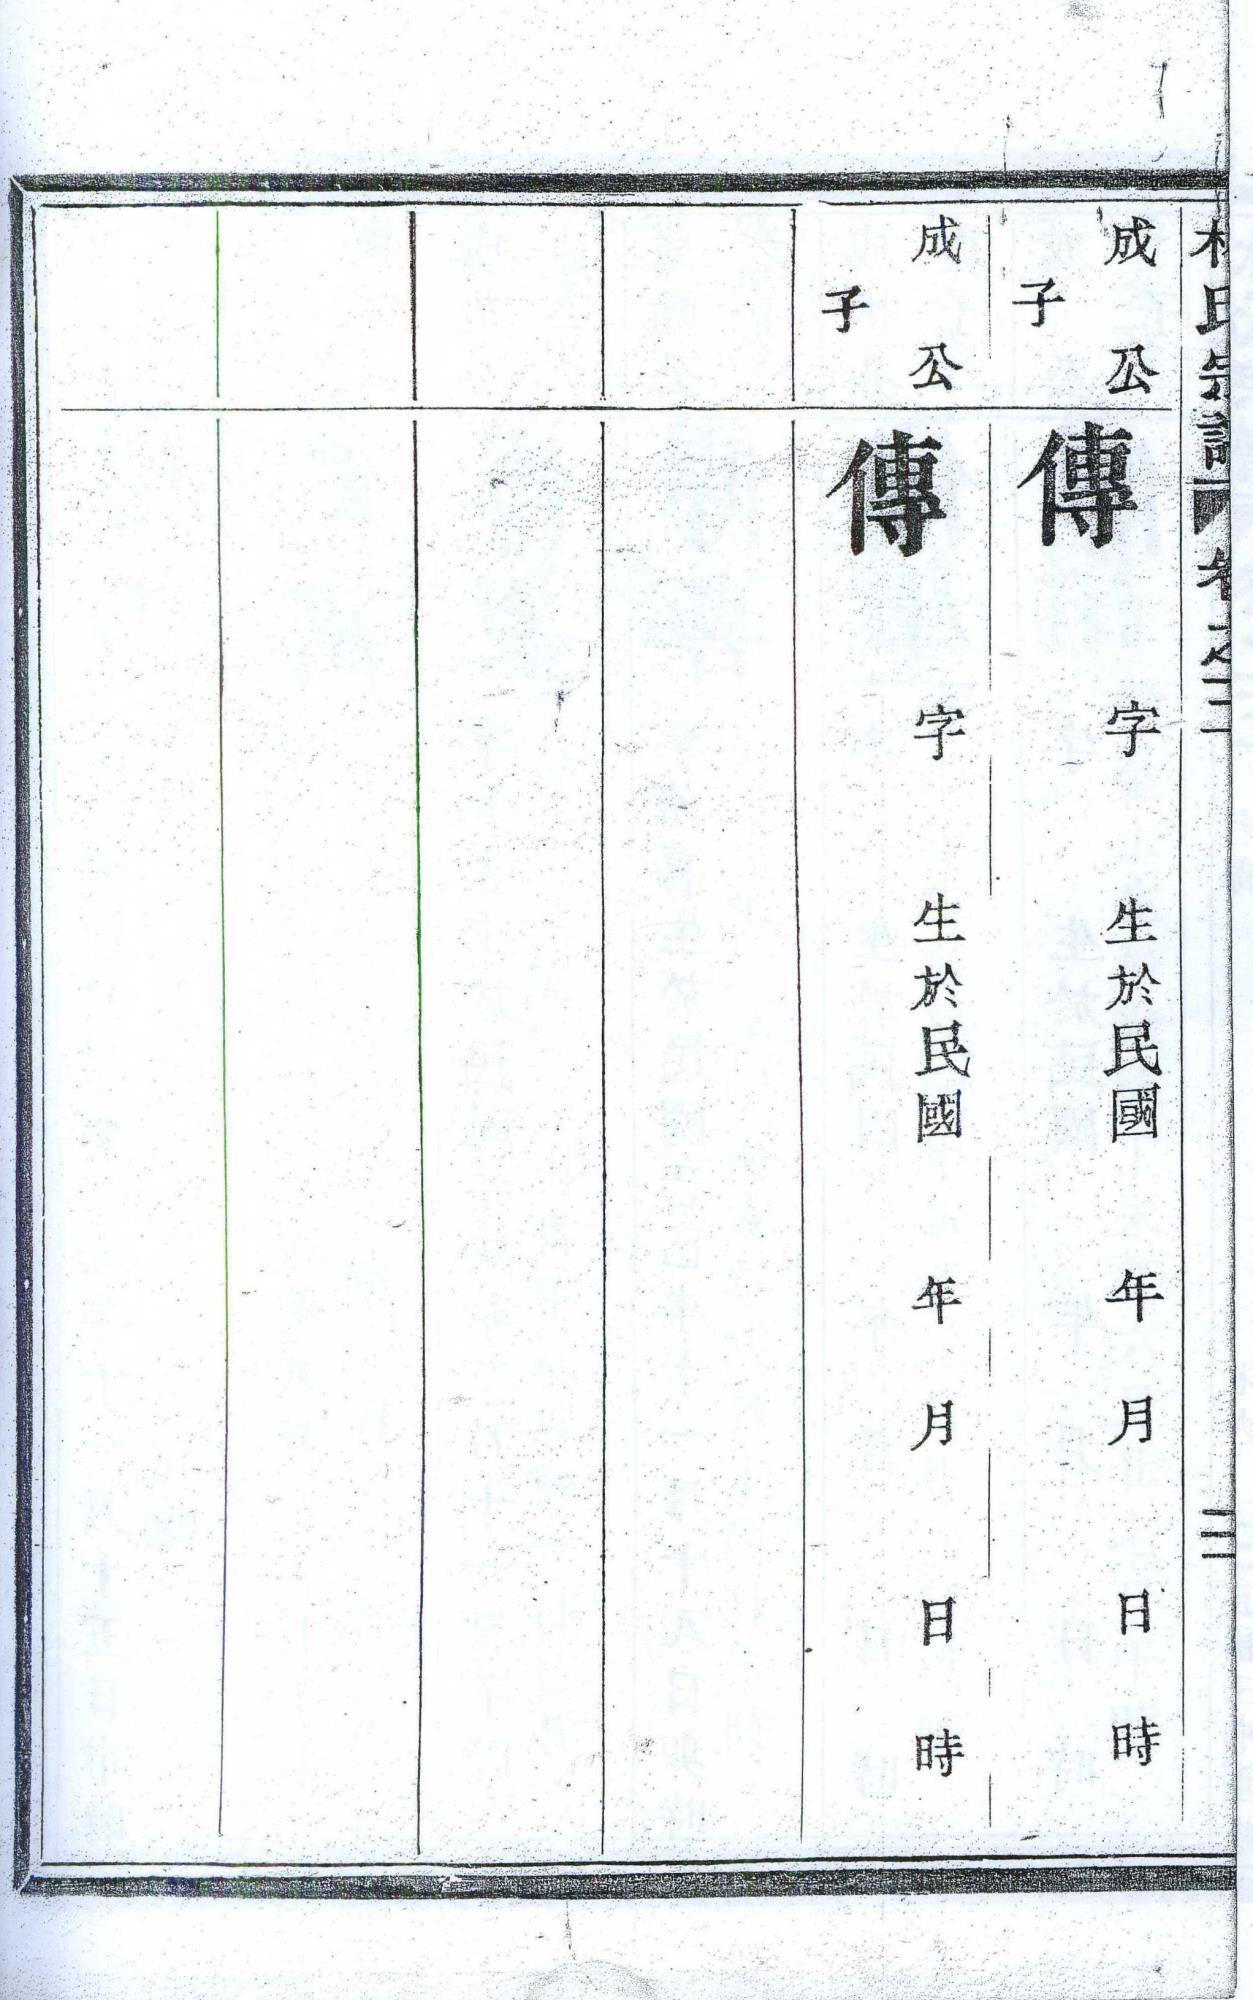 氏宗譜 卷之二 三
成 公
子
傳 字 生於民國 年 月 日 時
成 公
子
傳 字 生於民國 年 月 日 時